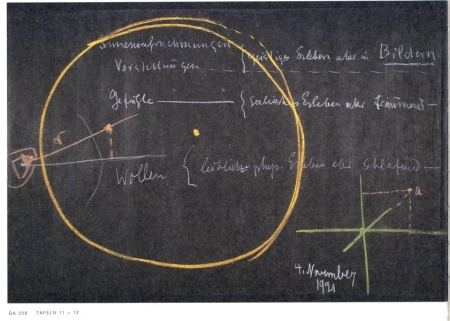 Sinneswahrnehmungen
Vorstellungen { geistiges Erleben aber in Bildern
Gefühle { seelisches Erleben aber träumend
Wollen { leiblich-phys. Erleben aber schlafend
a
4. November
1921
GA 208 TAFELN 11 + 12